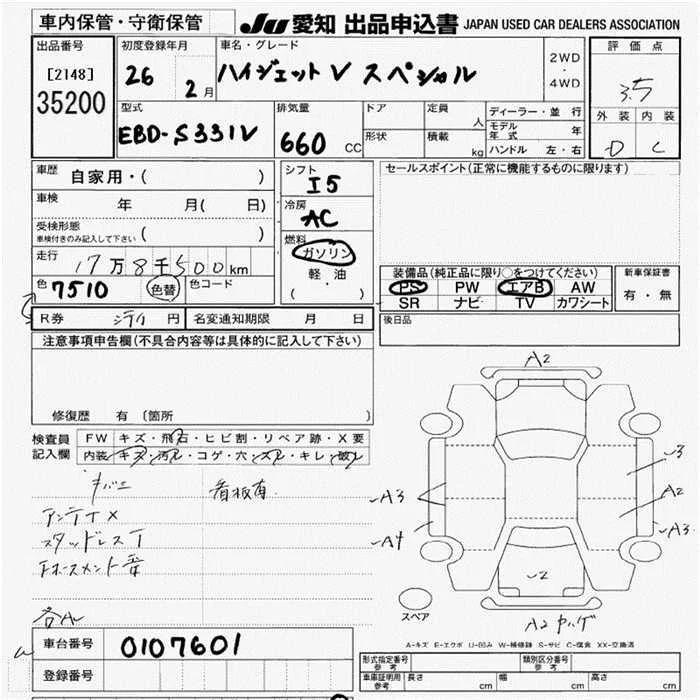 車内保管・守衛保管
JU 愛知 出品申込書 JAPAN USED CAR DEALERS ASSOCIATION
出品番号
[2148]
35200
初度登録年月
26 2月
車名・グレード
ハイジェットV スペシャル
2WD
・
4WD
評価点
3.5
外装 内装
D C
型式
EBD-S331V
排気量
660 CC
ドア
形状
定員 人
積載 kg
ディーラー・並行
モデル年式 年
ハンドル 左・右
車歴 自家用・( )
車検 年 月( 日)
受検形態
車検付きのみ記入して下さい ( )
走行 17万8千500km
色 7510 色替 色コード
シフト
I5
冷房
AC
燃料
ガソリン
軽・油
( )
セールスポイント(正常に機能するものに限ります)
装備品(純正品に限り○をつけてください)
PS PW エアB AW
SR ナビ TV カワシート
新車保証書
有・無
後日品
R券 円 名変通知期限 月 日
注意事項申告欄(不具合内容等は具体的に記入して下さい)
修復歴 有 〔箇所 〕
検査員
記入欄
FW キズ・飛石・ヒビ割・リペア跡・X要
内装 キズ・汚レ・コゲ・穴・スレ・キレ・破レ
看板有
アンテナX
スタッドレスT
各A
A2
A3
A4
3
A2
A3
2
スペア
A2
A-キズ E-エクボ U-凹み W-補修跡 S-サビ C-腐食 XX-交換済
車台番号 0107601
登録番号
形式指定番号
参考
類別区分番号
参考
車庫証明用
参考
長さ cm 幅 cm 高さ cm